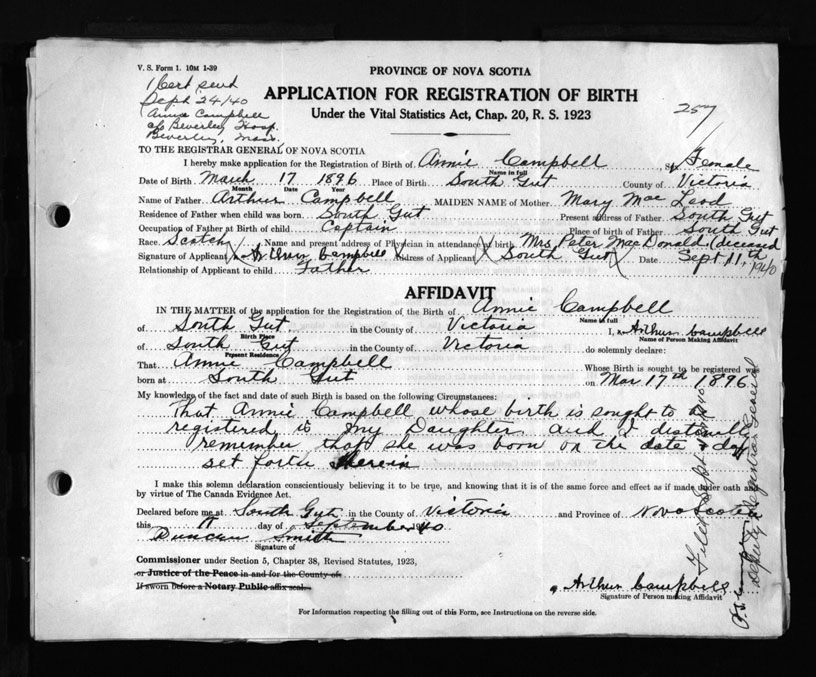 V. S. Form 1. 10M 1-39
1 Cert send
Sept 24/40
Annie Campbell
c/o Beverley Hosp.
Beverley, Mass.
PROVINCE OF NOVA SCOTIA
APPLICATION FOR REGISTRATION OF BIRTH
257
Under the Vital Statistics Act, Chap. 20, R. S. 1923
TO THE REGISTRAR GENERAL OF NOVA SCOTIA
I hereby make application for the Registration of Birth of Annie Campbell Female
Name in full
Date of Birth March 17 1896 Place of Birth South Gut County of Victoria
Month Date Year
Name of Father Arthur Campbell MAIDEN NAME of Mother Mary Mac Leod
Residence of Father when child was born South Gut Present address of Father South Gut
Occupation of Father at Birth of Child Captain Place of birth of Father South Gut
Race. Scotch Name and present address of Physician in attendance at birth Mrs Peter MacDonald (deceased
Signature of Applicant X Arthur Campbell Address of Applicant X South Gut X Date Sept 11th 1940
Relationship of Applicant to child Father
AFFIDAVIT
IN THE MATTER of the application for the Registration of the Birth of Annie Campbell
Name in full
of South Gut in the County of Victoria I, Arthur Campbell
Birth Place Name of Person Making Affidavit
of South Gut in the County of Victoria do solemnly declare:
Present Residence
That Annie Campbell Whose Birth is sought to be registered was
born at South Gut on Mar 17th 1896
My knowledge of the fact and date of such Birth is based on the following Circumstances:
That Annie Campbell whose birth is sought to be
registered is my Daughter and I
remember that she was born on the date & day
set forth herein
I make this solemn declaration conscientiously believing it to be true, and knowing that it is of the same force and effect as if made under oath and
by virtue of The Canada Evidence Act.
Declared before me at South Gut in the County of Victoria and Province of Nova Scotia
this 11 day of September 1940
Duncan Smith
Signature of
Commissioner under Section 5, Chapter 38, Revised Statutes, 1923,
or Justice of the Peace in and for the County of
If sworn before a Notary Public affix seal.
Arthur Campbell
Signature of Person making Affidavit
For Information respecting the filling out of this Form, see Instructions on the reverse side.
Filed Sept
Deputy Registrar General